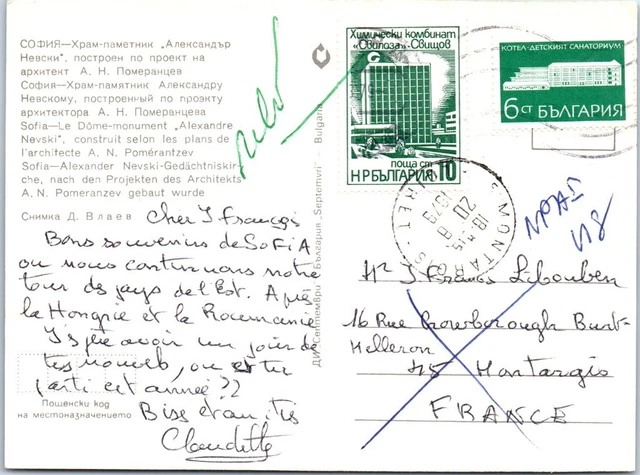 СОФИЯ—Храм-паметник „Александър
Невски", построен по проект на
архитект А. Н. Померанцев
София—Храм-памятник Александру
Невскому, построенный по проэкту
архитектора А. Н. Померанцева
Sofia—Le Dôme-monument „Alexandre
Nevski", construit selon les plans de
l'architecte A. N. Pomérantzev
Sofia—Alexander Nevski-Gedächtniskir-
che, nach den Projekten des Architekts
A. N. Pomeranzev gebaut wurde
Снимка Д. Влаев
Cher J François
Bons souvenirs de SOFIA
ou nous continuons notre
tour des pays de l'Est. Après
la Hongrie et la Roumanie
J'espère avoir un jour de
tes nouvelles, ou es tu
parti cet année ??
Bises
Claudette
Пощенски код
на местоназначението
ДИ „Септември" България „Septemvri" Bulgaria
Химически комбинат
„Свилоза"-Свищов
поща ст
НР БЪЛГАРИЯ 10
КОТЕЛ-ДЕТСКИЯТ САНАТОРИУМ
6 СТ БЪЛГАРИЯ
MONTARG
LOIRET
18
20
8
1979
NPAI
Mr J François
16 Rue Crowborough
45 Montargis
FRANCE